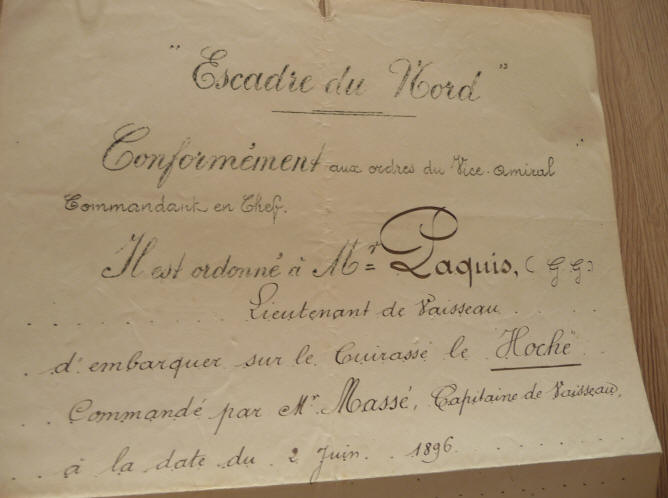 "Escadre du Nord"
Conformément aux ordres du Vice-Amiral
Commandant en Chef.
Il est ordonné à Mr Paquis, (G G)
Lieutenant de Vaisseau
d'embarquer sur le Cuirassé le "Hoche"
Commandé par Mr Massé, Capitaine de Vaisseau,
à la date du 2 Juin 1896